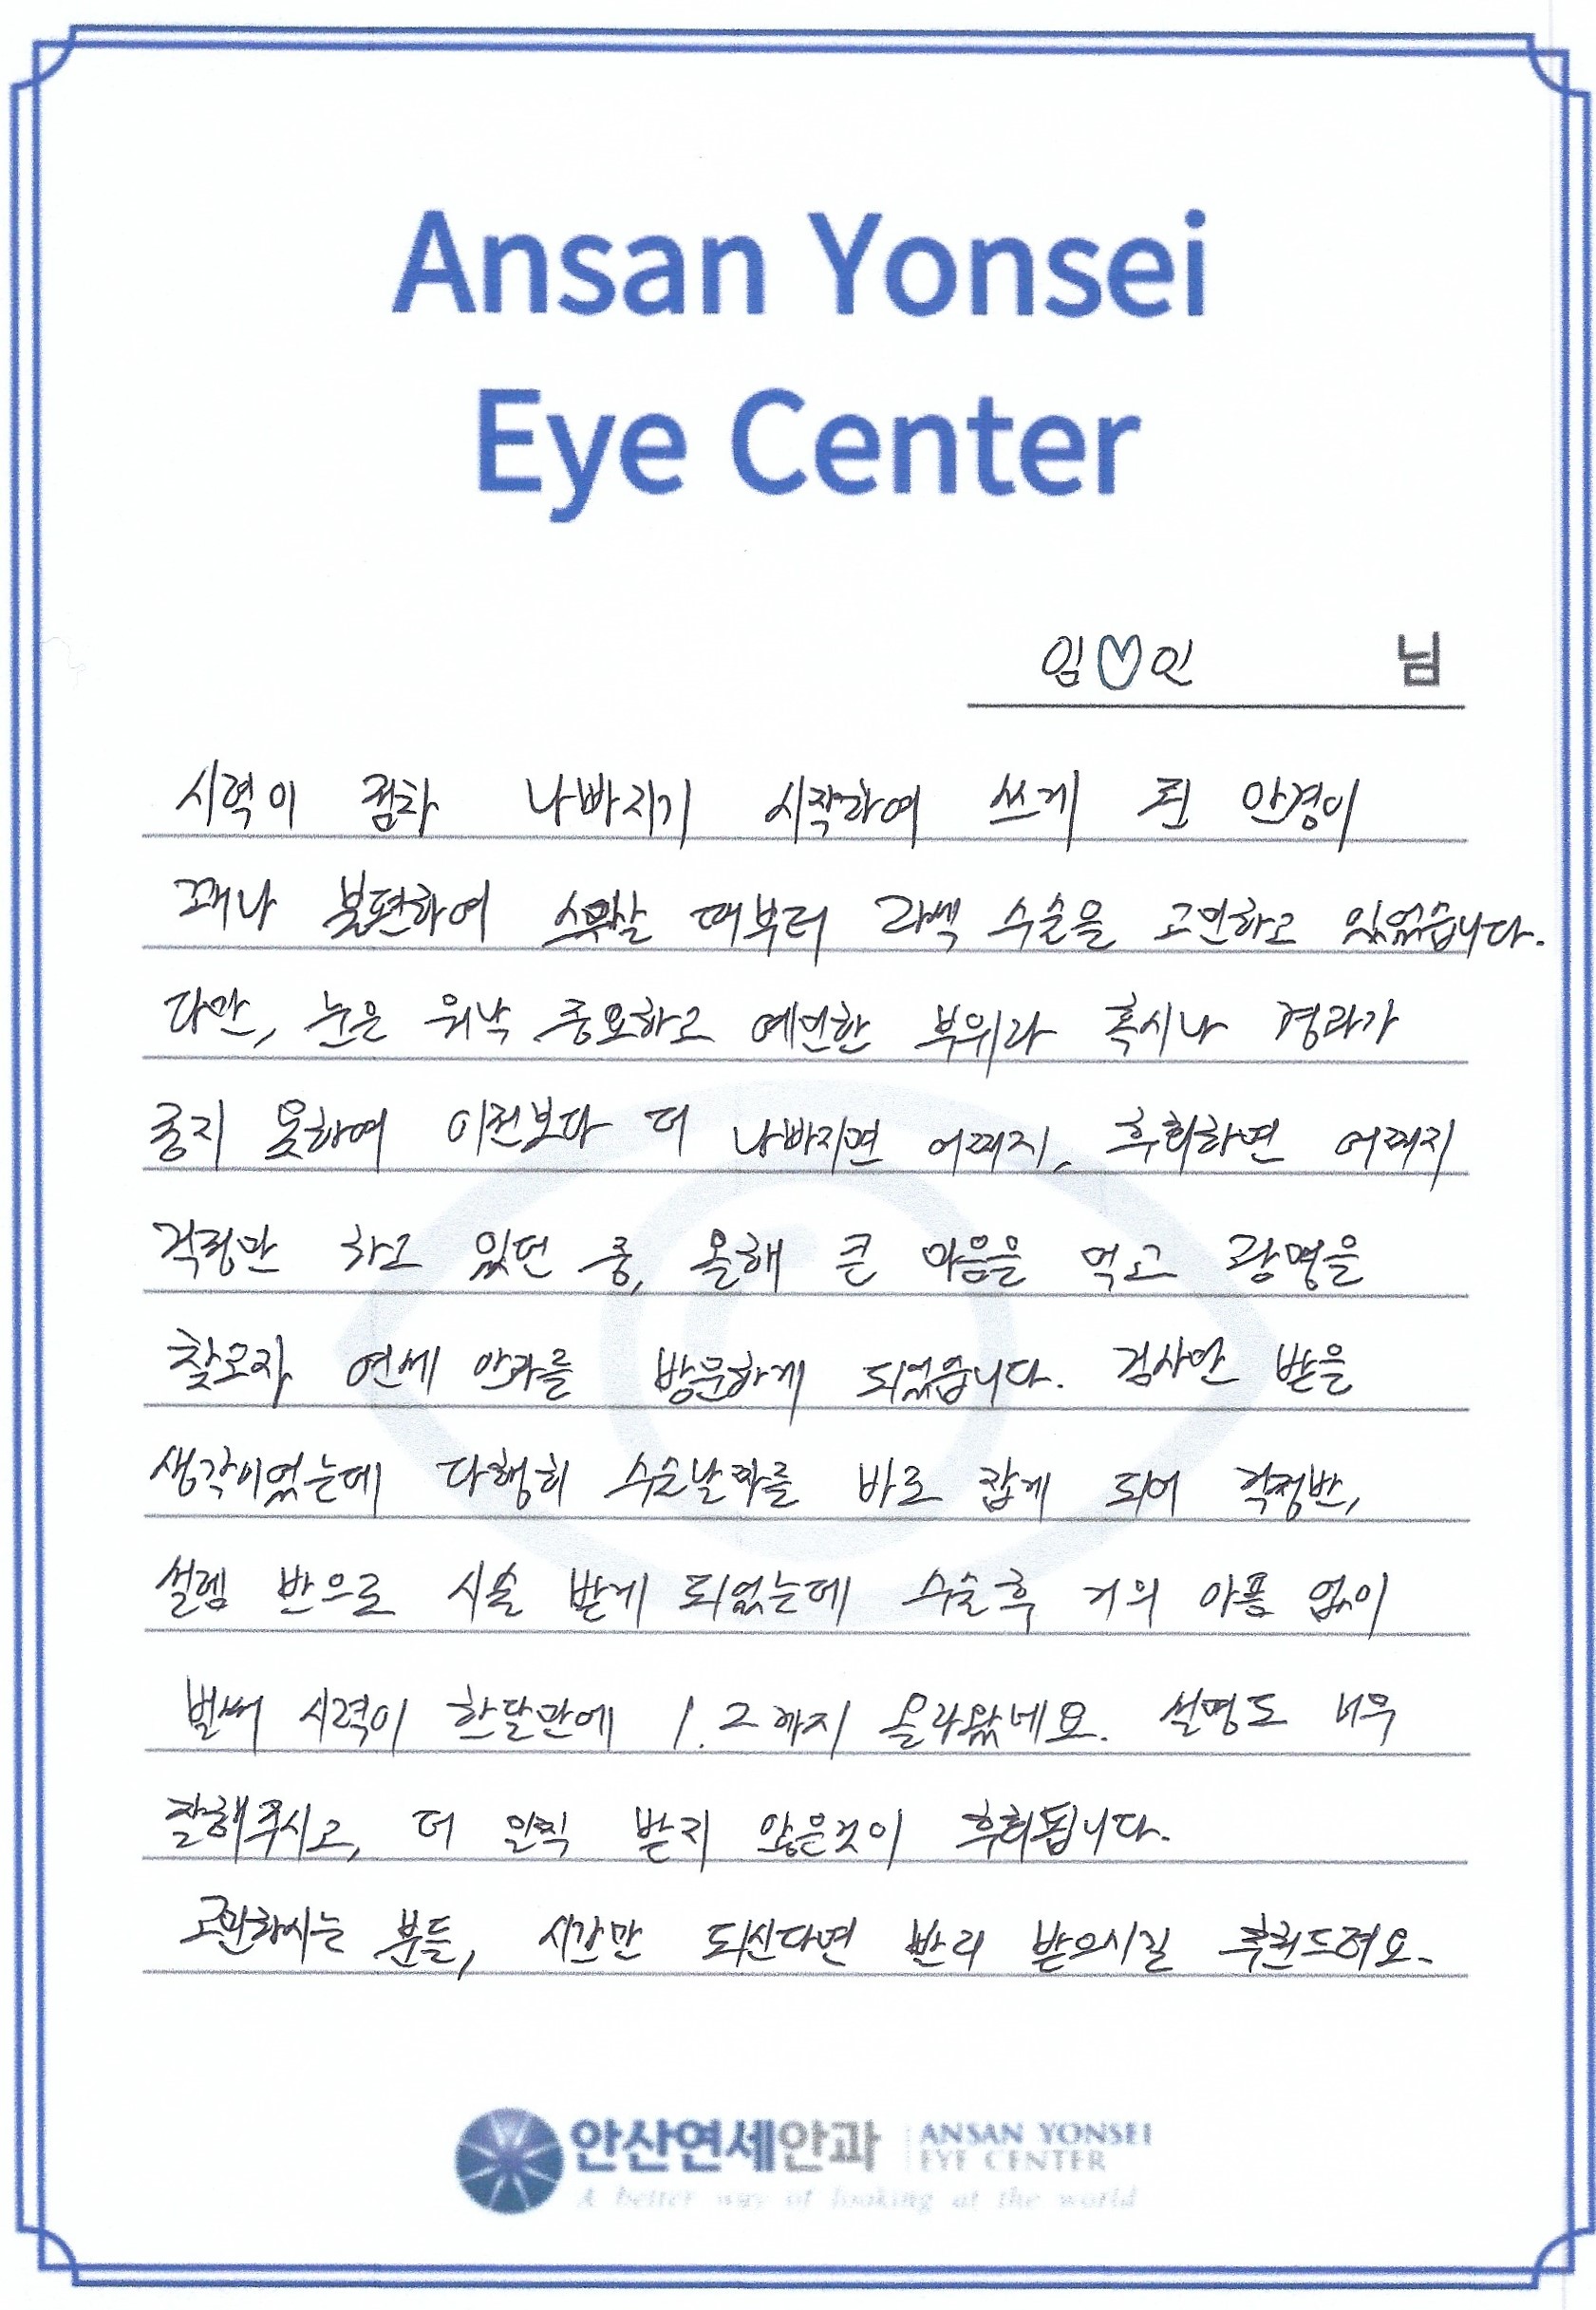 Ansan Yonsei
Eye Center
임♡인 님
시력이 점차 나빠지기 시작하여 쓰게 된 안경이
꽤나 불편하여 스무살 때부터 라섹 수술을 고민하고 있었습니다.
다만, 눈은 워낙 중요하고 예민한 부위라 혹시나 경과가
좋지 못하여 이전보다 더 나빠지면 어쩌지, 후회하면 어쩌지
걱정만 하고 있던 중, 올해 큰 마음을 먹고 광명을
찾고자 연세 안과를 방문하게 되었습니다. 검사만 받을
생각이었는데 다행히 수술날짜를 바로 잡게 되어 걱정반,
설렘 반으로 시술 받게 되었는데 수술후 거의 아픔 없이
벌써 시력이 한달만에 1.2까지 올라왔네요. 설명도 너무
잘해주시고, 더 일찍 받지 않은것이 후회됩니다.
고민하시는 분들, 시간만 되신다면 빨리 받으시길 추천드려요.
안산연세안과 ANSAN YONSEI
EYE CENTER
A better way of looking at the world